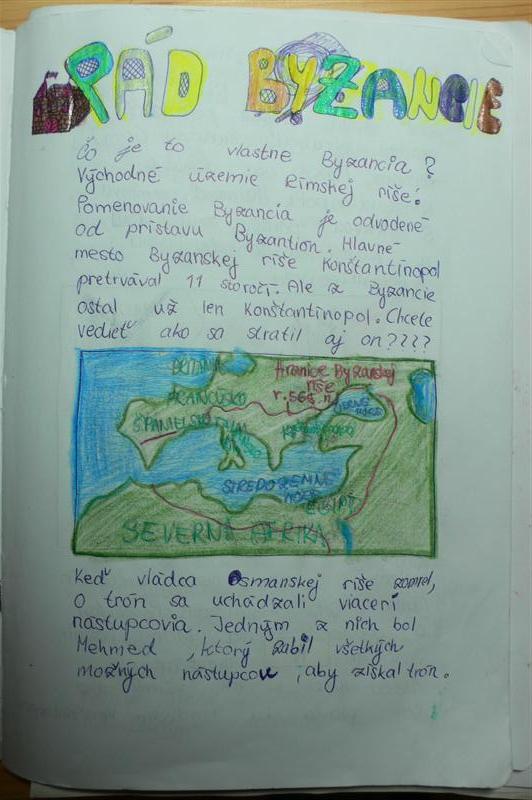 RÁD BYZANCIE
Čo je to vlastne Byzancia?
Východné územie Rímskej ríše.
Pomenovanie Byzancia je odvodené
od prístavu Byzantion. Hlavné
mesto Byzanskej ríše Konštantínopol
pretrvával 11 storočí. Ale z Byzancie
ostal už len Konštantínopol. Chcete
vedieť ako sa stratil aj on????
BRITÁNIA
Hranice Byzanskej
ríše
r. 565 n.
FRANCÚZSKO
ČIERNE
MORE
ŠPANIELSKO
RÍM
STREDOZEMNÉ
MORE
EGIPT
SEVERNÁ AFRIKA
Keď vládca Osmanskej ríše zomrel,
O trón sa uchádzali viacerí
nástupcovia. Jedným z nich bol
Mehmed, ktorý zabil všetkých
možných nástupcov, aby získal trón.